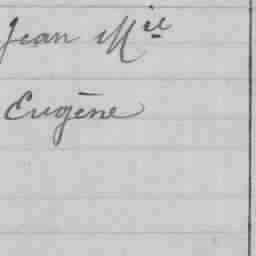 Jean Mie
Eugène